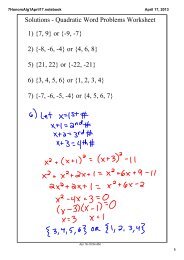 7HonorsAlg1April17.notebook April 17, 2013
Solutions - Quadratic Word Problems Worksheet
1) {7, 9} or {-9, -7}
2) {-8, -6, -4} or {4, 6, 8}
3) {21, 22} or {-22, -21}
4) {3, 4, 5, 6} or {1, 2, 3, 4}
7) {-7, -6, -5, -4} or {4, 5, 6, 7}
6) Let x = 1st #
x+1 = 2nd #
x+2 = 3rd #
x+3 = 4th #
x² + (x+1)² = (x+3)² - 11
x² + x² + 2x + 1 = x² + 6x + 9 - 11
2x² + 2x + 1 = x² + 6x - 2
x² - 4x + 3 = 0
(x-3)(x-1) = 0
x = 3 x = 1
{3, 4, 5, 6} or {1, 2, 3, 4}
1